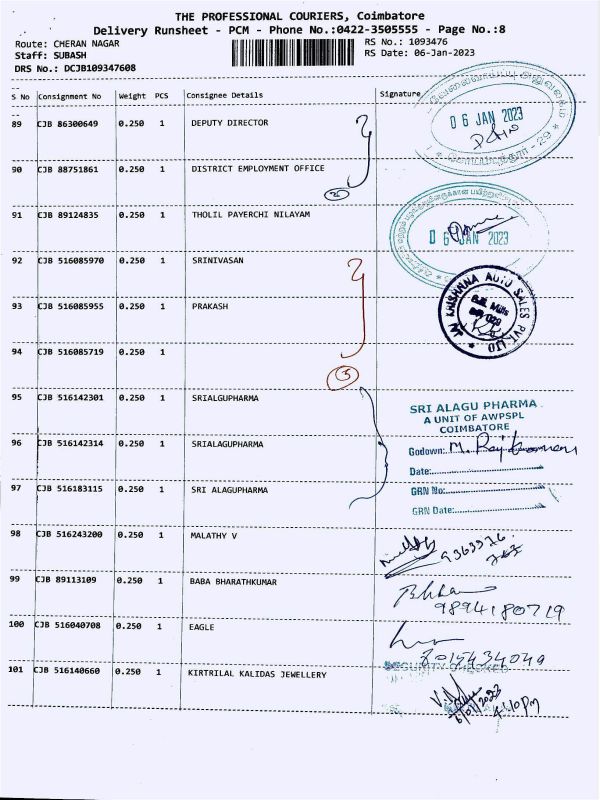 THE PROFESSIONAL COURIERS, Coimbatore
Delivery Runsheet - PCM - Phone No.:0422-3505555 - Page No.:8
Route: CHERAN NAGAR
RS No.: 1093476
Staff: SUBASH
RS Date: 06-Jan-2023
DRS No.: DCJB109347608
S No Consignment No Weight PCS Consignee Details Signature
89 CJB 86300649 0.250 1 DEPUTY DIRECTOR
06 JAN 2023
90 CJB 88751861 0.250 1 DISTRICT EMPLOYMENT OFFICE
91 CJB 89124835 0.250 1 THOLIL PAYERCHI NILAYAM
06 JAN 2023
92 CJB 516085970 0.250 1 SRINIVASAN
JAI KRISHNNA AUTO SALES PVT LTD
93 CJB 516085955 0.250 1 PRAKASH
94 CJB 516085719 0.250 1
95 CJB 516142301 0.250 1 SRIALGUPHARMA
SRI ALAGU PHARMA
A UNIT OF AWPSPL
COIMBATORE
96 CJB 516142314 0.250 1 SRIALAGUPHARMA
Godown:
Date:
97 CJB 516183115 0.250 1 SRI ALAGUPHARMA
GRN No:
GRN Date:
98 CJB 516243200 0.250 1 MALATHY V
99 CJB 89113109 0.250 1 BABA BHARATHKUMAR
9894180719
100 CJB 516040708 0.250 1 EAGLE
8015434049
101 CJB 516140660 0.250 1 KIRTRILAL KALIDAS JEWELLERY
4.10 Pm